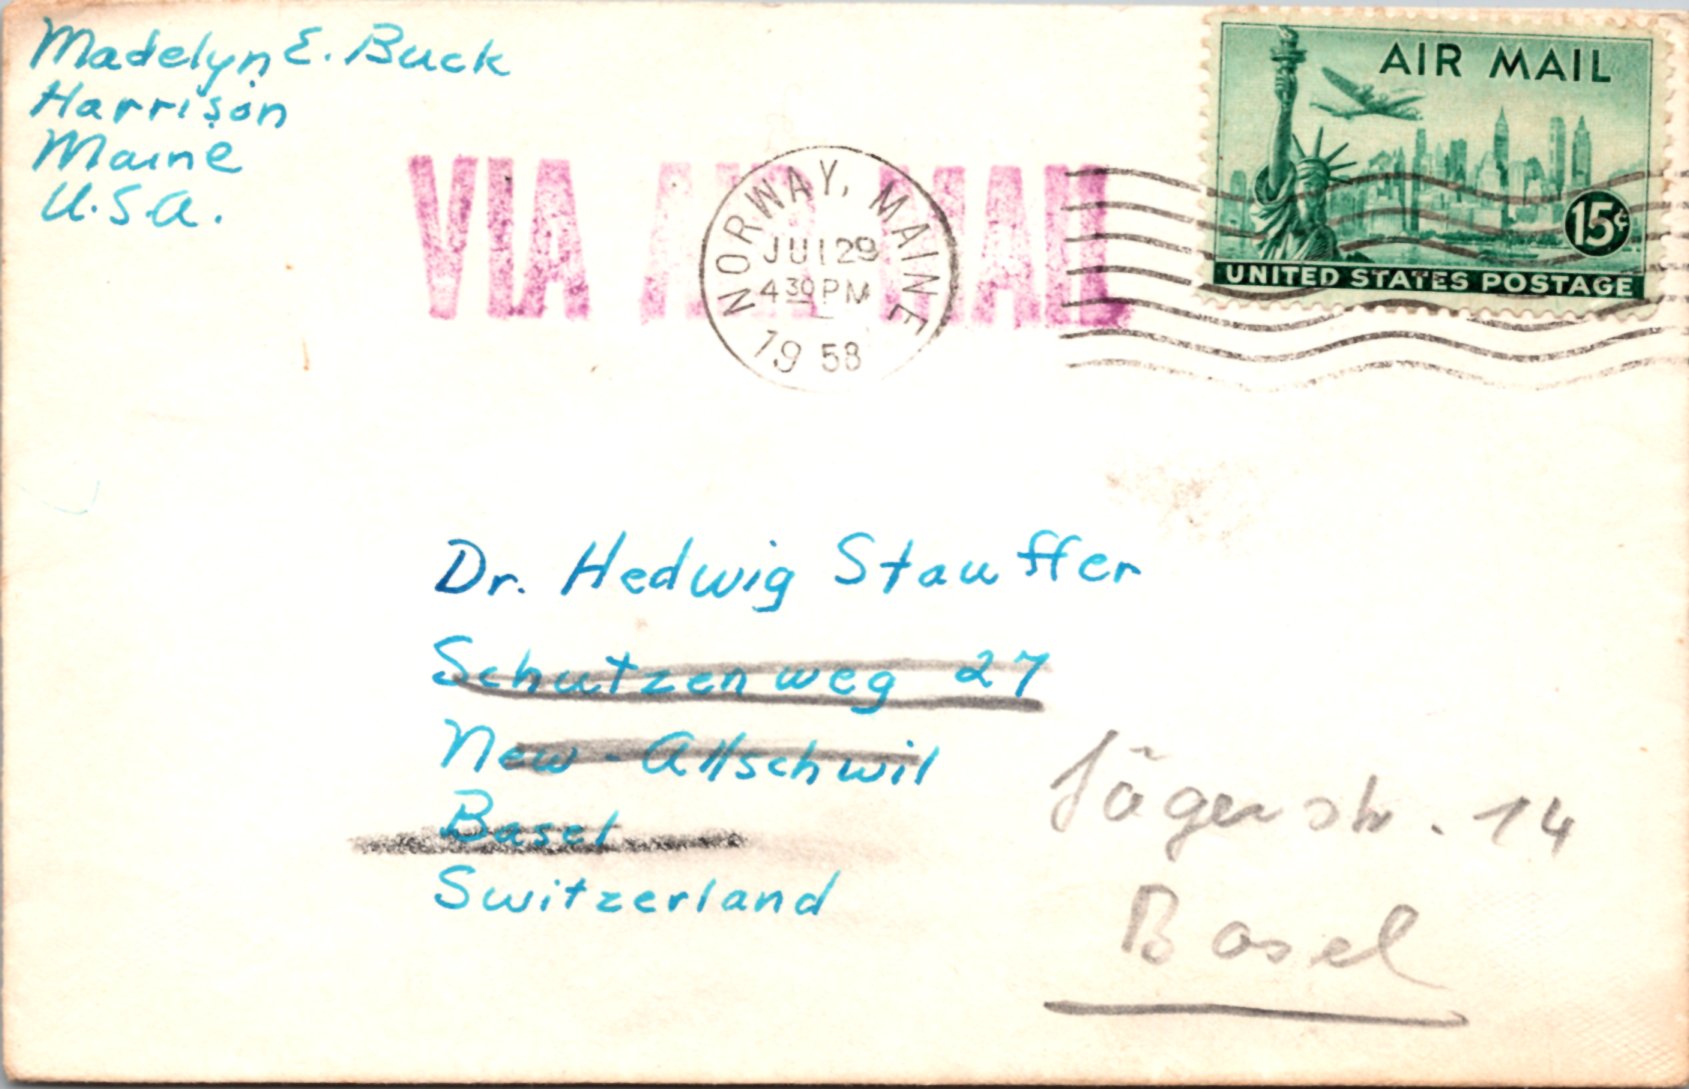 Madelyn E. Buck
Harrison
Maine
U.S.A.
VIA AIR MAIL
NORWAY, MAINE
JUL 29
4 30 PM
1958
AIR MAIL
15¢
UNITED STATES POSTAGE
Dr. Hedwig Stauffer
Schutzenweg 27
New-Allschwil
Basel
Switzerland
Jägerstr. 14
Basel